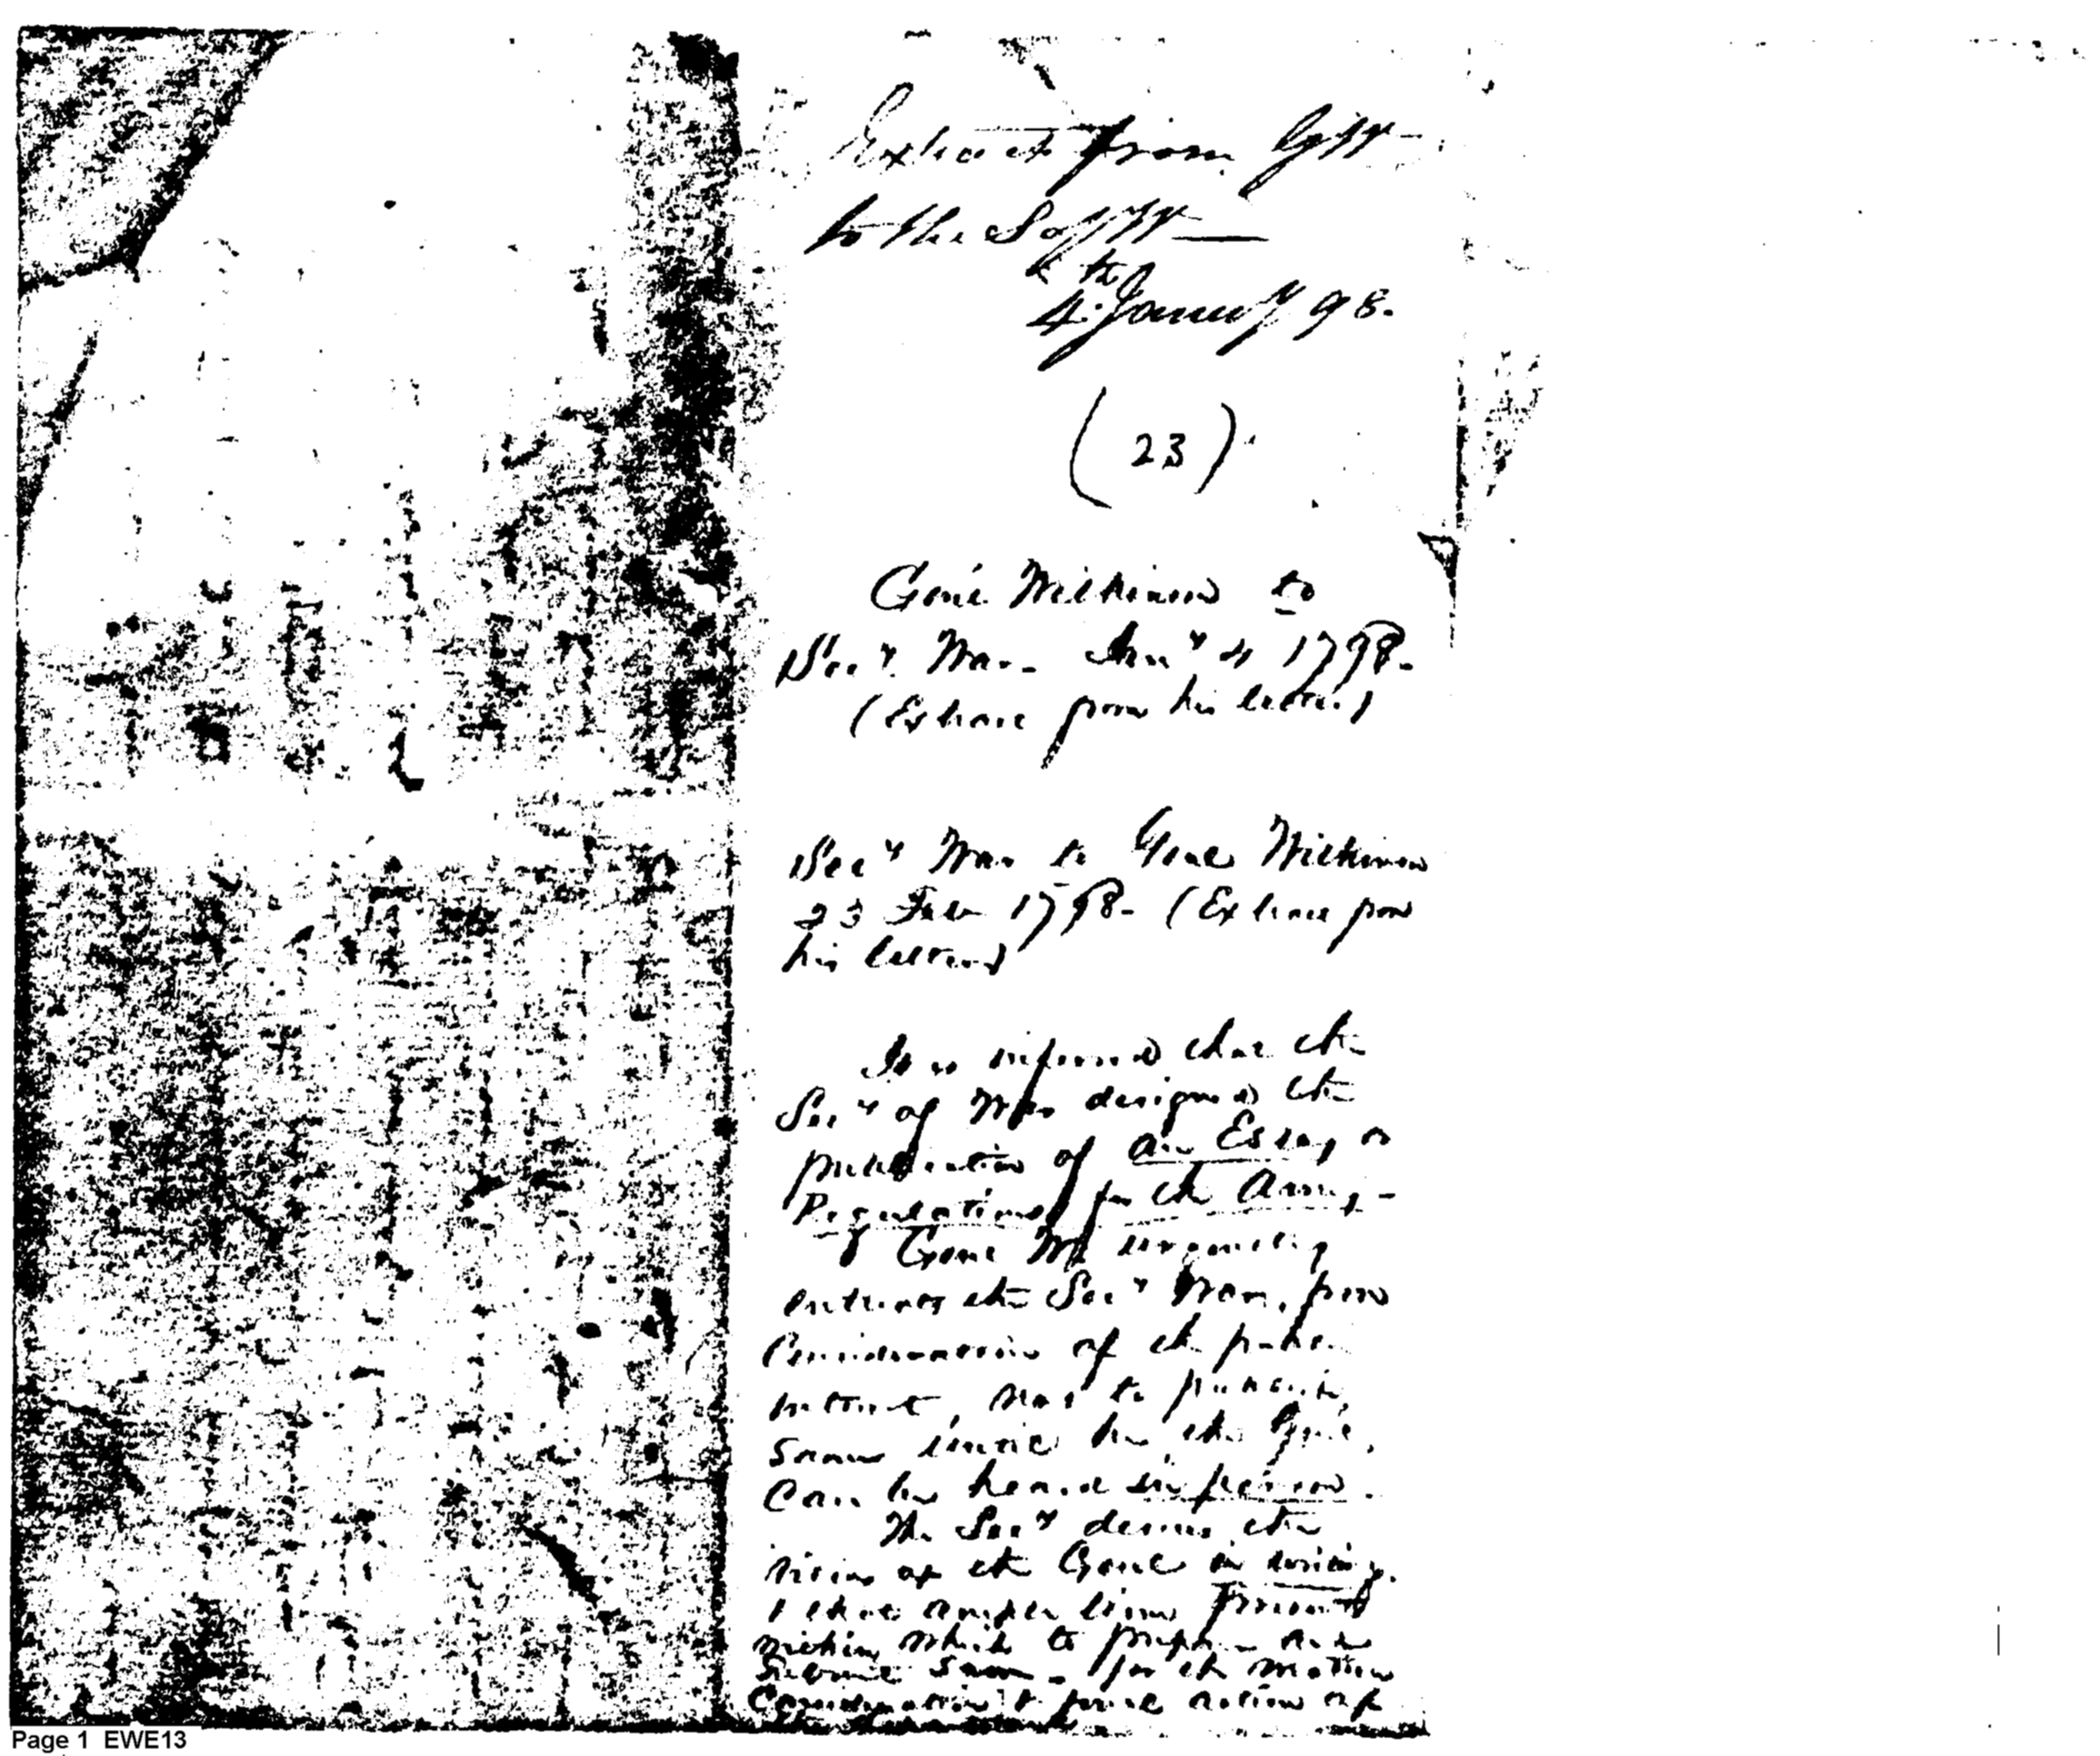 Extract from GW—
to the Sy W—
4th Januy 98.
(23)
Genl Wilkinson to
Secy War Jany 4 1798.
(Extract from his letter)
Secy War to Genl Wilkinson
23 Feb 1798. (Extract from
his letter)
It is inferred that the
Secy of War designed the
publication of an Essay or
Regulations for the Army—
Genl W. urgently
entreats the Secy War, from
Considerations of the public
interest, not to
same until he the Genl,
Can be heard in person.
The Secy desires the
views of the Genl in writing.
& that ample time
within which to prepare and
Submit same—for the mature
Consideration & final action of
Page 1 EWE13